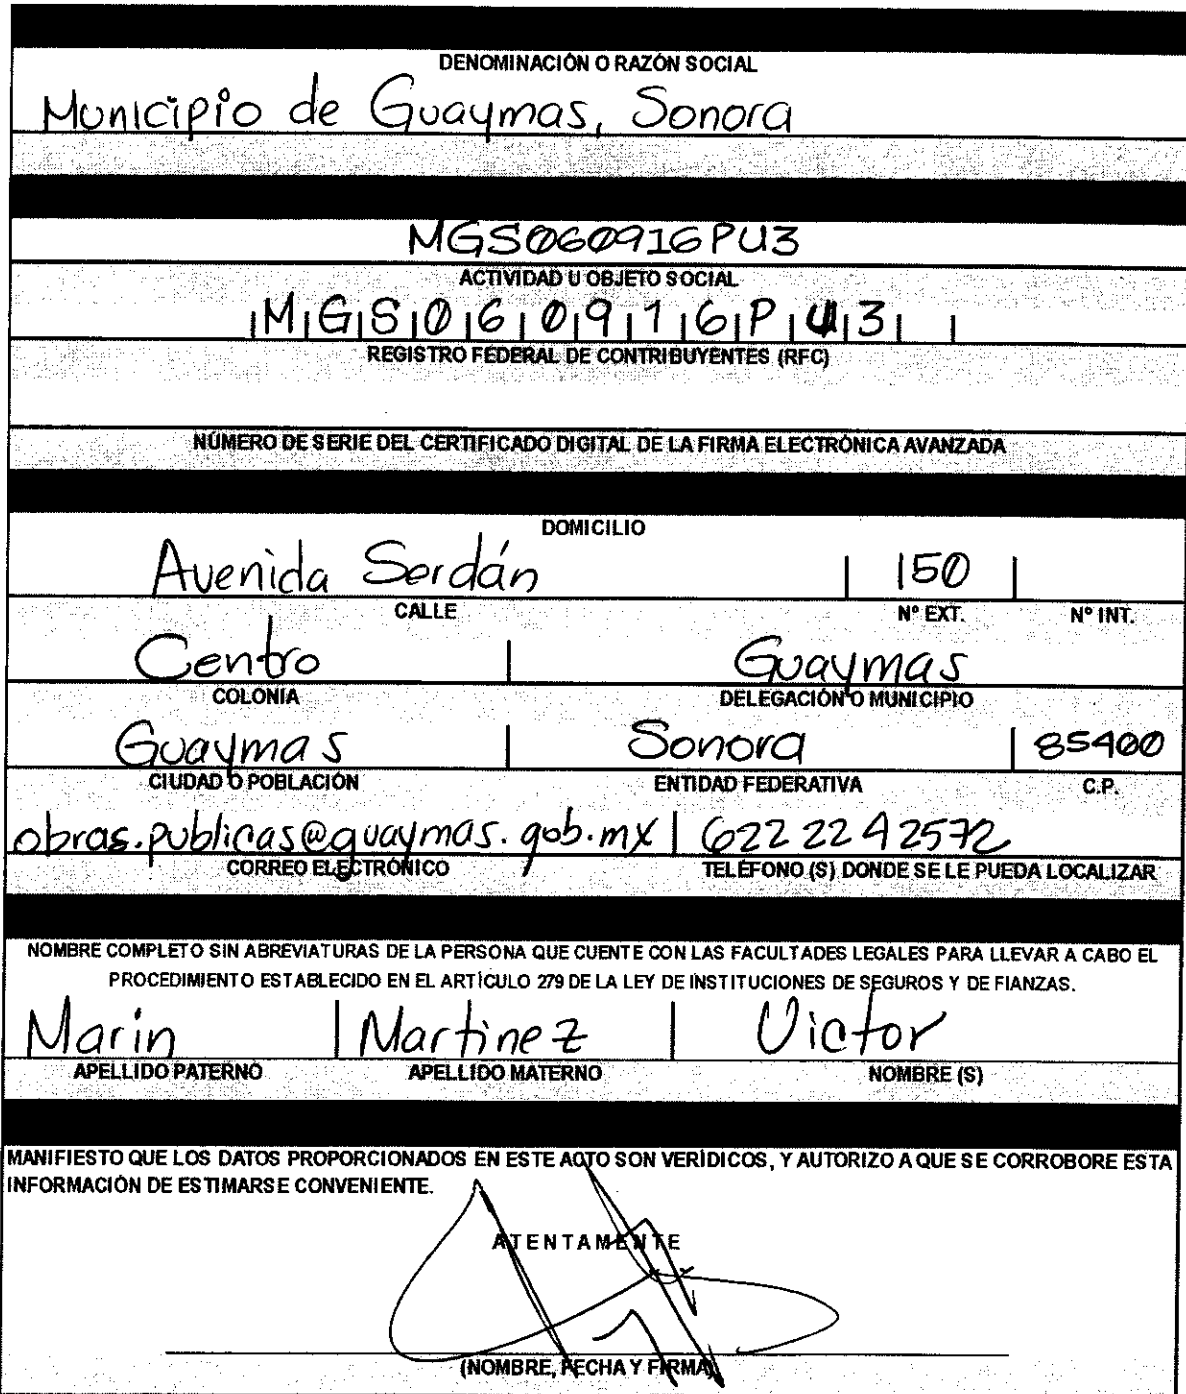 DENOMINACIÓN O RAZÓN SOCIAL
Municipio de Guaymas, Sonora
MGS060916PU3
ACTIVIDAD U OBJETO SOCIAL
MGS060916PU3
REGISTRO FEDERAL DE CONTRIBUYENTES (RFC)
NÚMERO DE SERIE DEL CERTIFICADO DIGITAL DE LA FIRMA ELECTRÓNICA AVANZADA
DOMICILIO
Avenida Serdán 150
CALLE Nº EXT. Nº INT.
Centro Guaymas
COLONIA DELEGACIÓN O MUNICIPIO
Guaymas Sonora 85400
CIUDAD O POBLACIÓN ENTIDAD FEDERATIVA C.P.
obras.publicas@guaymas.gob.mx 622 22 42572
CORREO ELECTRÓNICO TELÉFONO (S) DONDE SE LE PUEDA LOCALIZAR
NOMBRE COMPLETO SIN ABREVIATURAS DE LA PERSONA QUE CUENTE CON LAS FACULTADES LEGALES PARA LLEVAR A CABO EL
PROCEDIMIENTO ESTABLECIDO EN EL ARTÍCULO 279 DE LA LEY DE INSTITUCIONES DE SEGUROS Y DE FIANZAS.
Marin Martinez Victor
APELLIDO PATERNO APELLIDO MATERNO NOMBRE (S)
MANIFIESTO QUE LOS DATOS PROPORCIONADOS EN ESTE ACTO SON VERÍDICOS, Y AUTORIZO A QUE SE CORROBORE ESTA
INFORMACIÓN DE ESTIMARSE CONVENIENTE.
ATENTAMENTE
(NOMBRE, FECHA Y FIRMA)